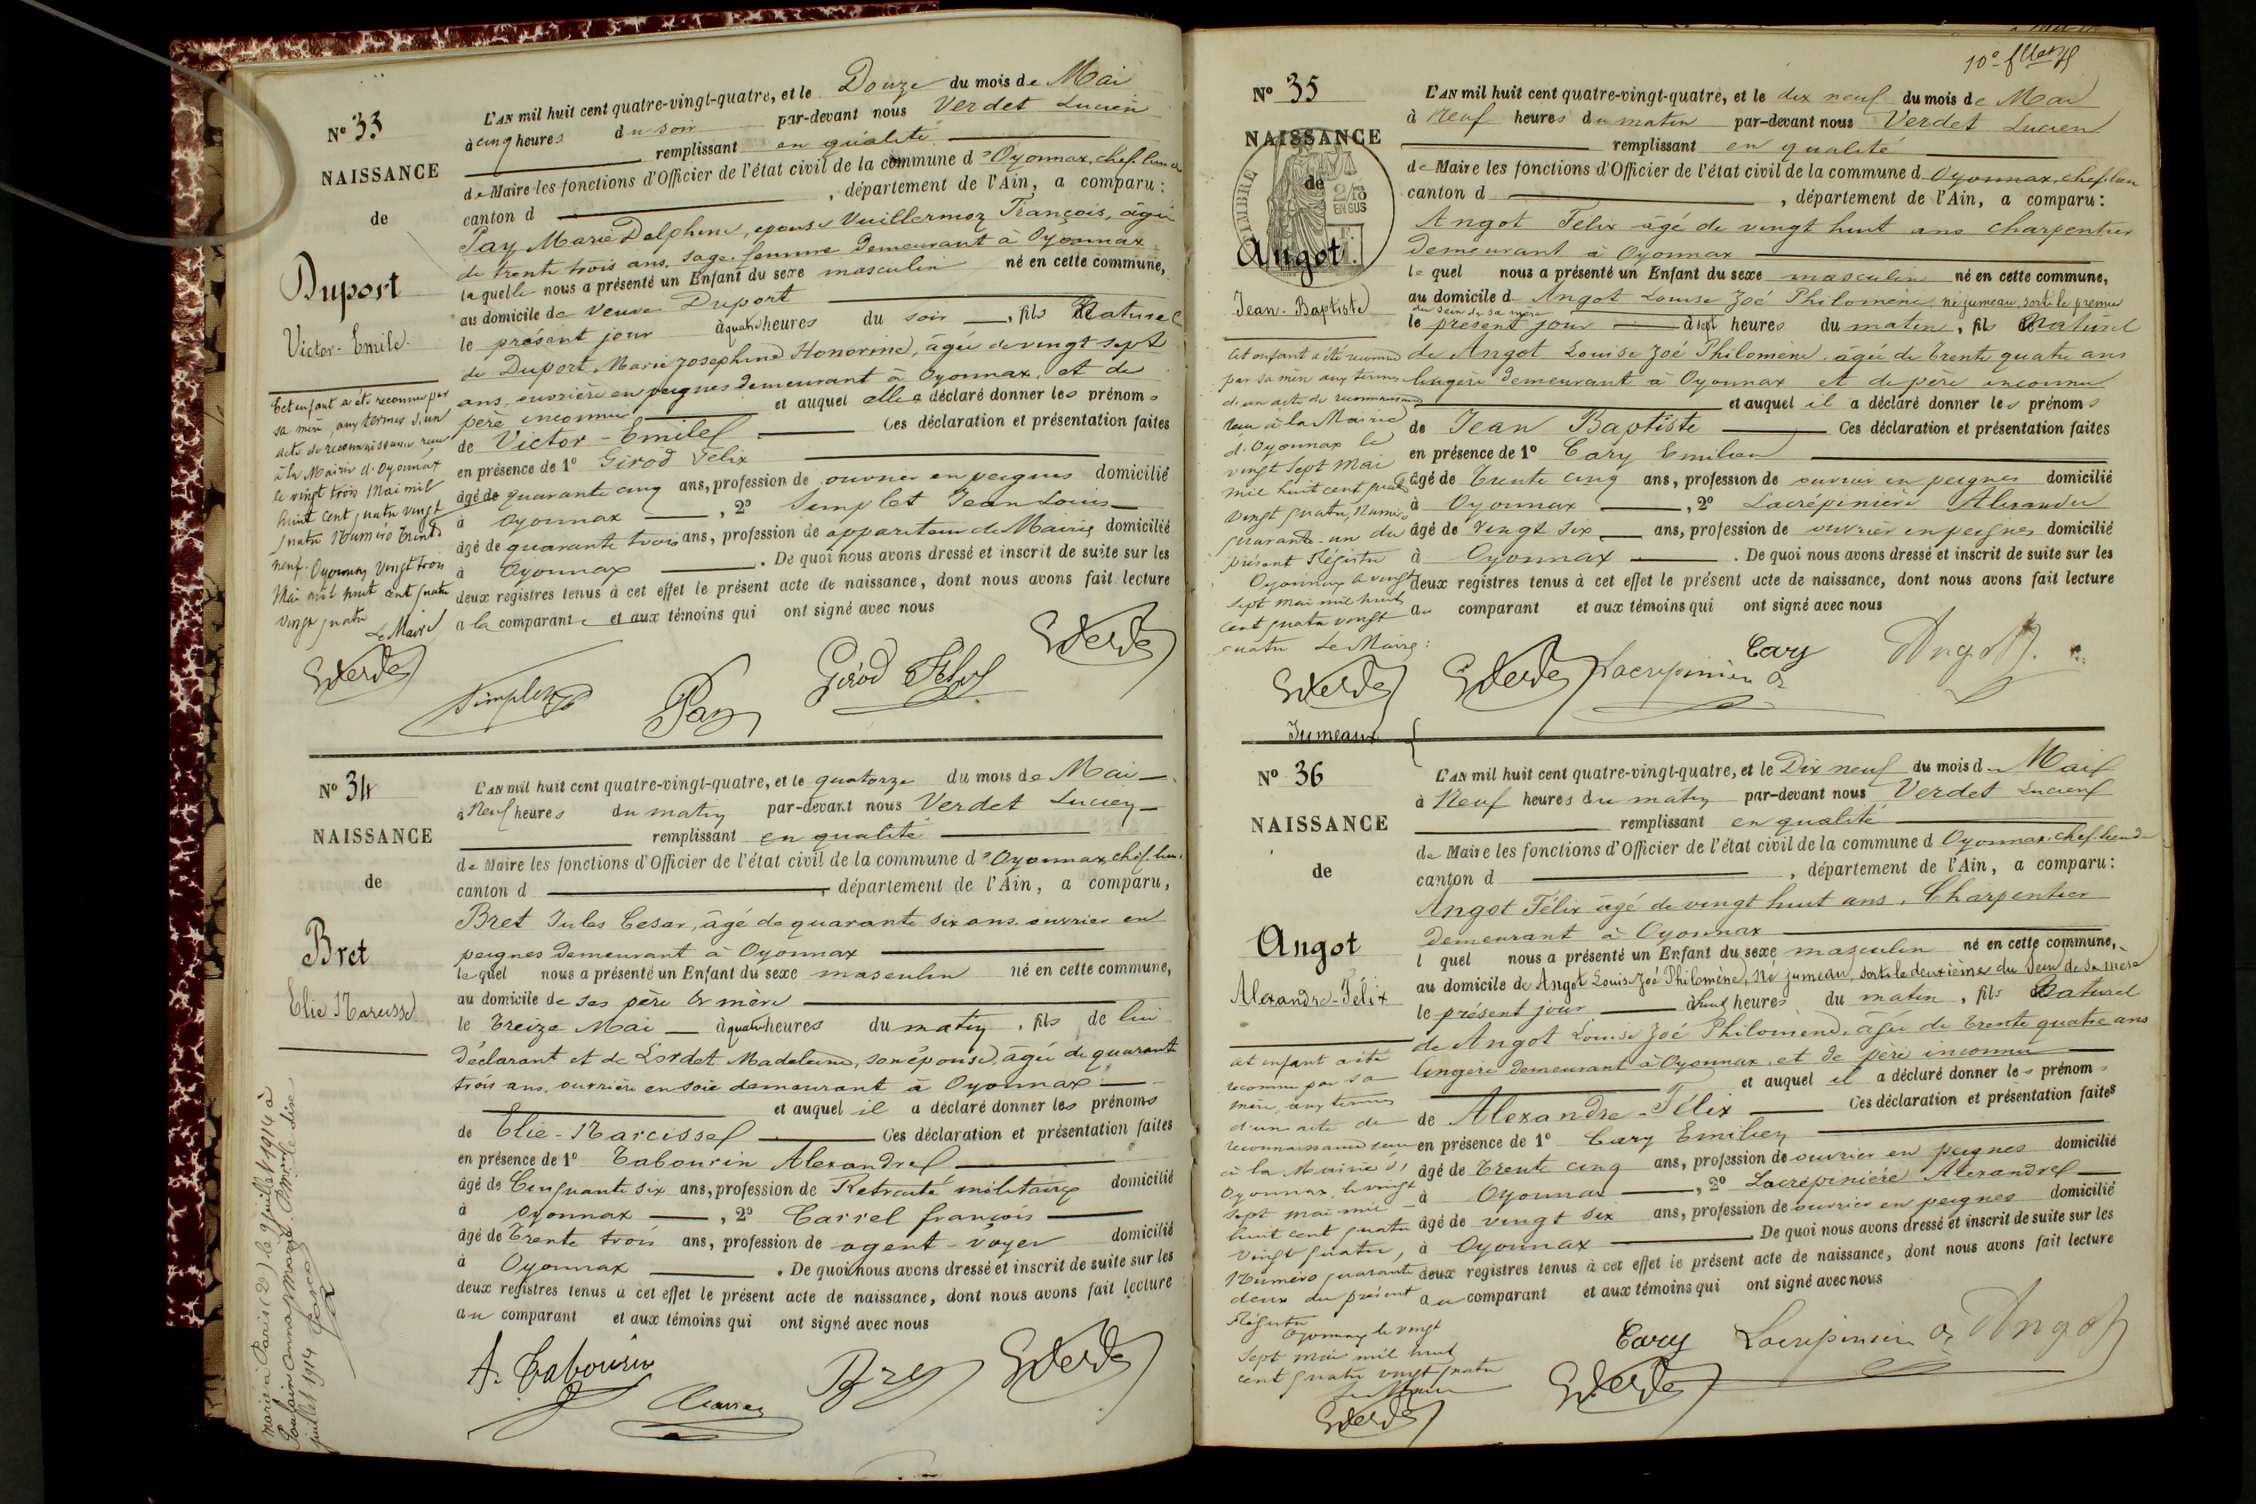 N° 33
NAISSANCE
de
Duport
Victor-Emile
Cet enfant a été reconnu par
sa mère, aux termes d'un
acte de reconnaissance reçu
à la Mairie d'Oyonnax
le vingt trois Mai mil
huit cent quatre vingt
quatre Numéro trente
neuf. Oyonnax vingt trois
Mai mil huit cent quatre
vingt quatre
Le Maire
L'AN mil huit cent quatre-vingt-quatre, et le Douze du mois de Mai
à cinq heures du soir par-devant nous Verdet Lucien
remplissant en qualité
de Maire les fonctions d'Officier de l'état civil de la commune d'Oyonnax, chef-lieu de
canton d , département de l'Ain, a comparu :
Pay Marie Delphine, épouse Vuillermoz François, âgée
de trente trois ans, sage-femme demeurant à Oyonnax
laquelle nous a présenté un Enfant du sexe masculin né en cette commune,
au domicile de Veuve Duport
le présent jour à quatre heures du soir , fils Naturel
de Duport Marie Josephine Honorine, âgée de vingt sept
ans, ouvrière en peignes demeurant à Oyonnax, et de
père inconnu et auquel elle a déclaré donner les prénoms
de Victor-Emile Ces déclaration et présentation faites
en présence de 1° Girod Felix
âgé de quarante cinq ans, profession de ouvrier en peignes domicilié
à Oyonnax , 2° Simplet Jean Louis
âgé de quarante trois ans, profession de appariteur de Mairie domicilié
à Oyonnax . De quoi nous avons dressé et inscrit de suite sur les
deux registres tenus à cet effet le présent acte de naissance, dont nous avons fait lecture
a la comparante et aux témoins qui ont signé avec nous
Verdet
Simplet
Pay
Girod Felix
Verdet
N° 34
NAISSANCE
de
Bret
Elie Narcisse
marié à Paris (2e) le 9 juillet 1914 à
juillet 1914
L'AN mil huit cent quatre-vingt-quatre, et le quatorze du mois de Mai
à Neuf heures du matin par-devant nous Verdet Lucien
remplissant en qualité
de Maire les fonctions d'Officier de l'état civil de la commune d'Oyonnax, chef-lieu
canton d , département de l'Ain, a comparu,
Bret Jules Cesar, âgé de quarante six ans, ouvrier en
peignes demeurant à Oyonnax
lequel nous a présenté un Enfant du sexe masculin né en cette commune,
au domicile de ses père & mère
le Treize Mai à quatre heures du matin , fils de lui
déclarant et de Lordet Madeleine, son épouse, âgée de quarante
trois ans, ouvrière en soie demeurant à Oyonnax
et auquel il a déclaré donner les prénoms
de Elie-Narcisse Ces déclaration et présentation faites
en présence de 1° Tabourin Alexandre
âgé de Cinquante six ans, profession de Retraité militaire domicilié
à Oyonnax , 2° Carrel françois
âgé de Trente trois ans, profession de agent-voyer domicilié
à Oyonnax . De quoi nous avons dressé et inscrit de suite sur les
deux registres tenus à cet effet le présent acte de naissance, dont nous avons fait lecture
au comparant et aux témoins qui ont signé avec nous
A. Tabourin
Bret
Verdet
N° 35
NAISSANCE
de
TIMBRE
2/10
EN SUS
Angot
Jean-Baptiste
Cet enfant a été reconnu
par sa mère aux termes
d'un acte de reconnaissance
reçu à la Mairie
d'Oyonnax le
vingt sept Mai
mil huit cent quatre
vingt quatre, Numéro
quarante-un du
présent Régistre
Oyonnax le vingt
sept Mai mil huit
cent quatre vingt
quatre Le Maire :
L'AN mil huit cent quatre-vingt-quatre, et le dix neuf du mois de Mai
à Neuf heures du matin par-devant nous Verdet Lucien
remplissant en qualité
de Maire les fonctions d'Officier de l'état civil de la commune d'Oyonnax, chef-lieu
canton d , département de l'Ain, a comparu :
Angot Felix âgé de vingt huit ans charpentier
demeurant à Oyonnax
lequel nous a présenté un Enfant du sexe masculin né en cette commune,
au domicile d'Angot Louise Zoé Philomène, né jumeau, sorti le premier
du sein de sa mère
le présent jour à sept heures du matin, fils Naturel
de Angot Louise Zoé Philomène, âgée de Trente quatre ans
lingère demeurant à Oyonnax et de père inconnu
et auquel il a déclaré donner les prénoms
de Jean Baptiste Ces déclaration et présentation faites
en présence de 1° Cary Emilien
âgé de Trente cinq ans, profession de ouvrier en peignes domicilié
à Oyonnax , 2° Lacrépinière Alexandre
âgé de vingt six ans, profession de ouvrier en peignes domicilié
à Oyonnax . De quoi nous avons dressé et inscrit de suite sur les
deux registres tenus à cet effet le présent acte de naissance, dont nous avons fait lecture
au comparant et aux témoins qui ont signé avec nous
Verdet
Verdet
Lacrepiniere
Cary
Angot
Jumeaux
N° 36
NAISSANCE
de
Angot
Alexandre-Félix
Cet enfant a été
reconnu par sa
mère, aux termes
d'un acte de
reconnaissance reçu
à la Mairie d'
Oyonnax, le vingt
sept mai mil
huit cent quatre
vingt quatre,
Numéro quarante
deux du présent
Régistre
Oyonnax le vingt
sept mai mil huit
cent quatre vingt quatre
Le Maire
Verdet
L'AN mil huit cent quatre-vingt-quatre, et le Dix neuf du mois de Mai
à Neuf heures du matin par-devant nous Verdet Lucien
remplissant en qualité
de Maire les fonctions d'Officier de l'état civil de la commune d'Oyonnax, chef-lieu de
canton d , département de l'Ain, a comparu :
Angot Félix âgé de vingt huit ans, Charpentier
demeurant à Oyonnax
l quel nous a présenté un Enfant du sexe masculin né en cette commune,
au domicile de Angot Louise Zoé Philomène, né jumeau, sorti le deuxième du sein de sa mère
le présent jour à huit heures du matin , fils Naturel
de Angot Louise Zoé Philomène, âgée de trente quatre ans
lingère demeurant à Oyonnax, et de père inconnu
et auquel il a déclaré donner les prénoms
de Alexandre-Félix Ces déclaration et présentation faites
en présence de 1° Cary Emilien
âgé de trente cinq ans, profession de ouvrier en peignes domicilié
à Oyonnax , 2° Lacrépinière Alexandre
âgé de vingt six ans, profession de ouvrier en peignes domicilié
à Oyonnax . De quoi nous avons dressé et inscrit de suite sur les
deux registres tenus à cet effet le présent acte de naissance, dont nous avons fait lecture
au comparant et aux témoins qui ont signé avec nous
Cary
Lacrepiniere
Angot
Verdet